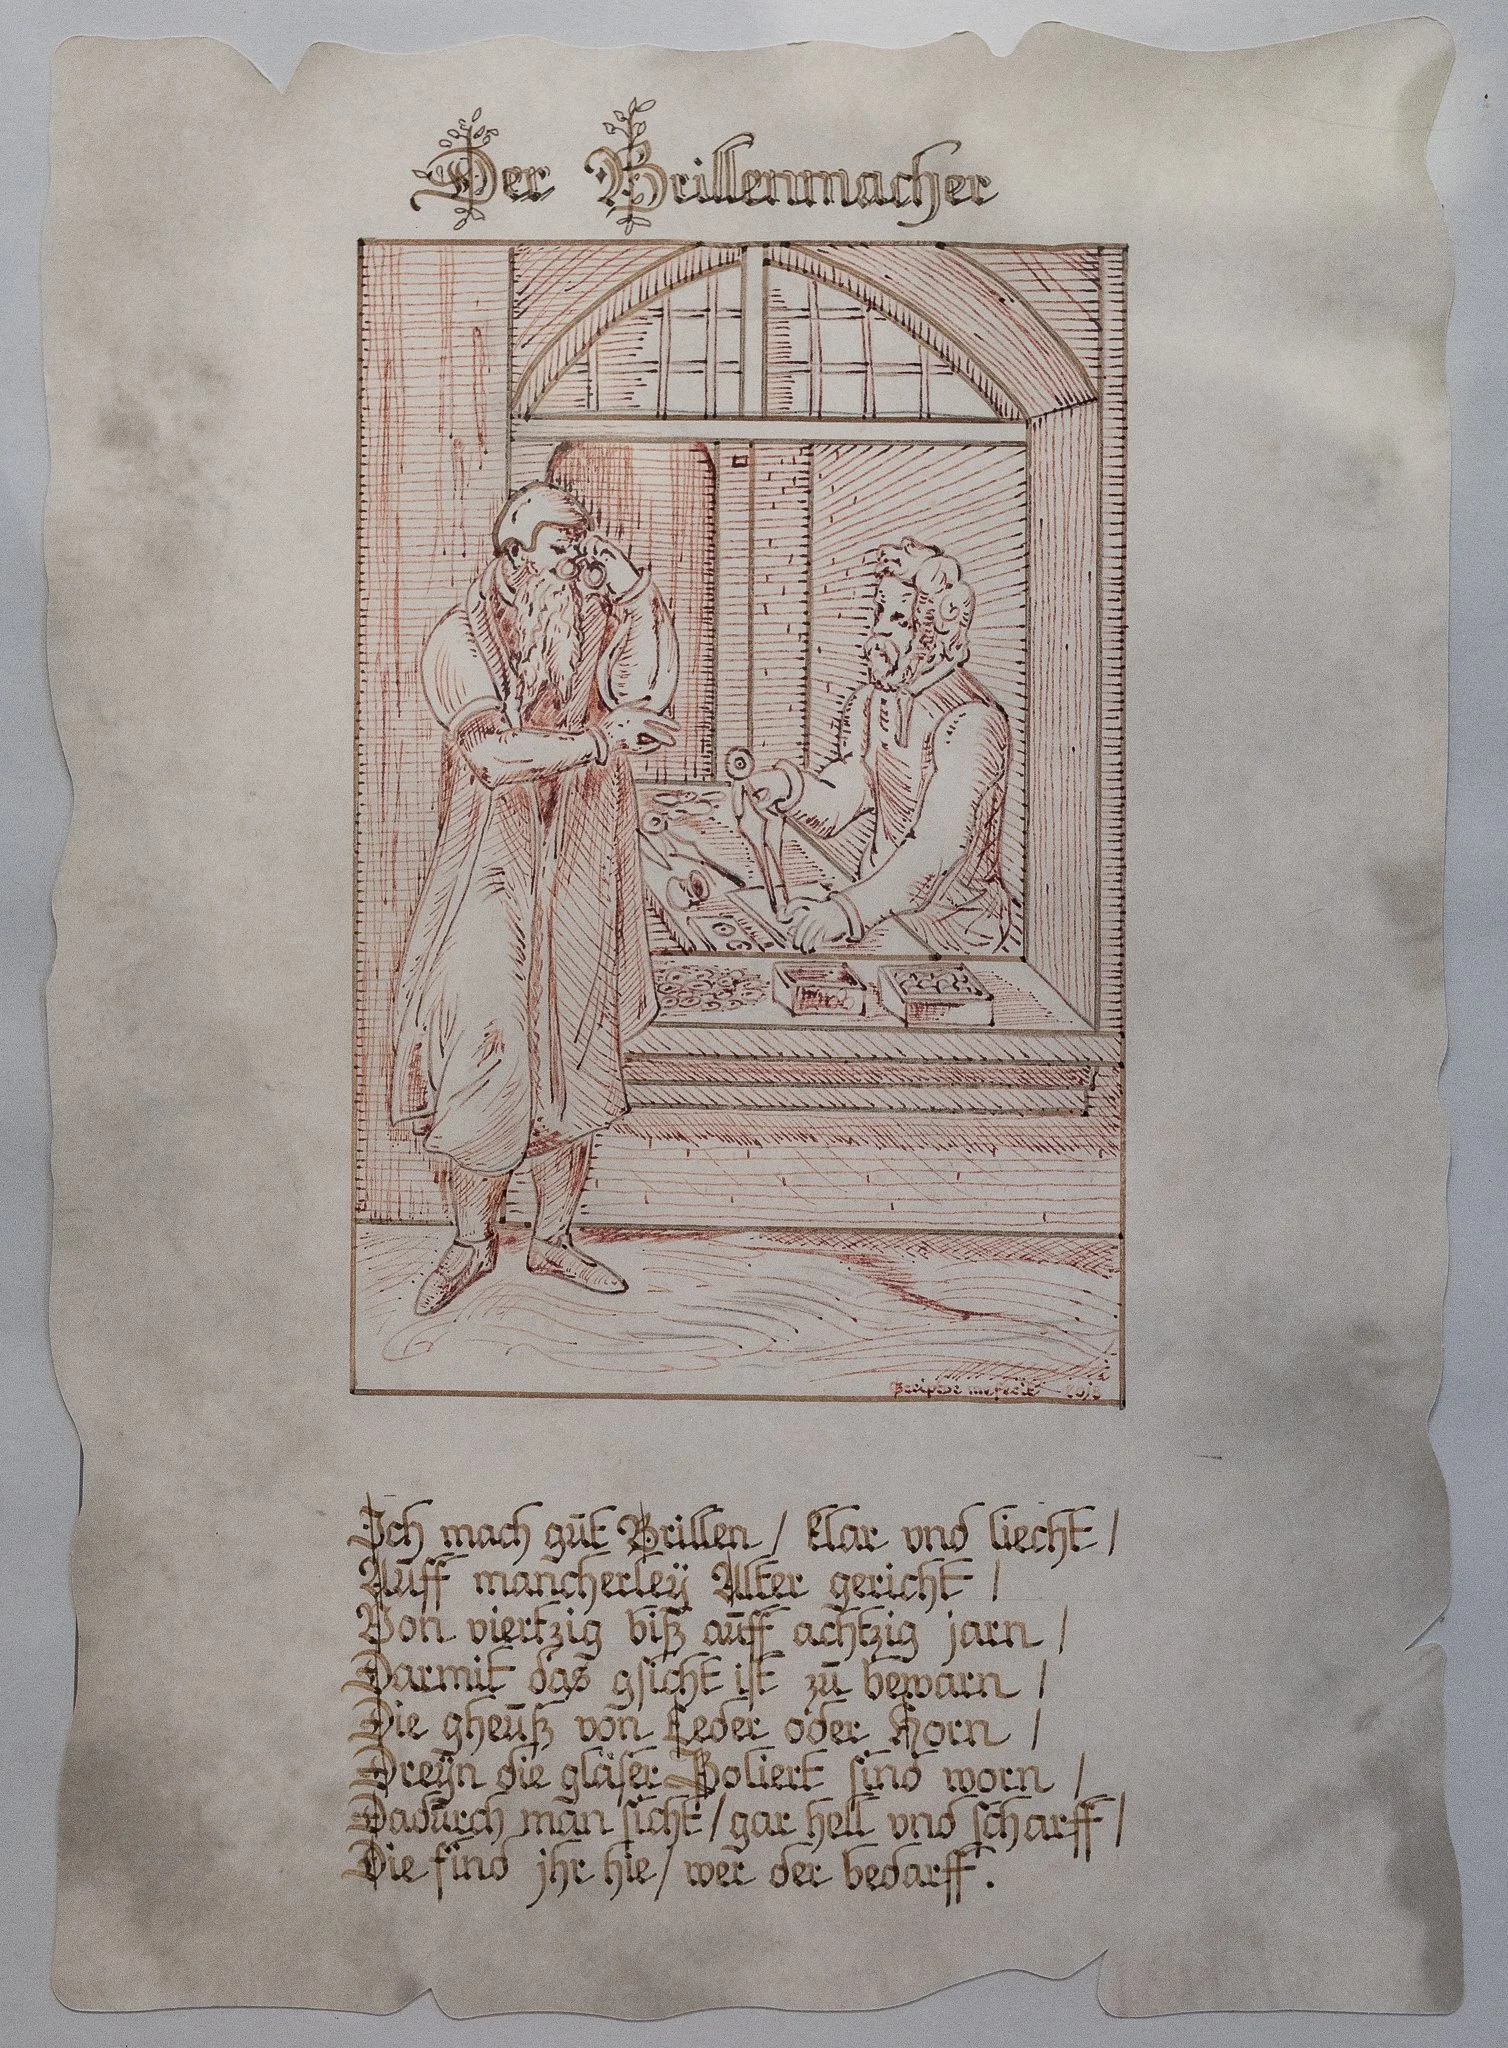 Der Brillenmacher
mefecit
Ich mach gůt Brillen / klar vnd liecht /
Auff mancherley Alter gericht /
Von viertzig biß aůff achtzig jarn /
Darmit das gsicht ist zů bewarn /
Die gheůß von Leder oder Horn /
Dreyn die gläser Poliert sind worn /
Dadůrch man sicht / gar hell vnd scharff /
Die find jhr hie / wer der bedarff.